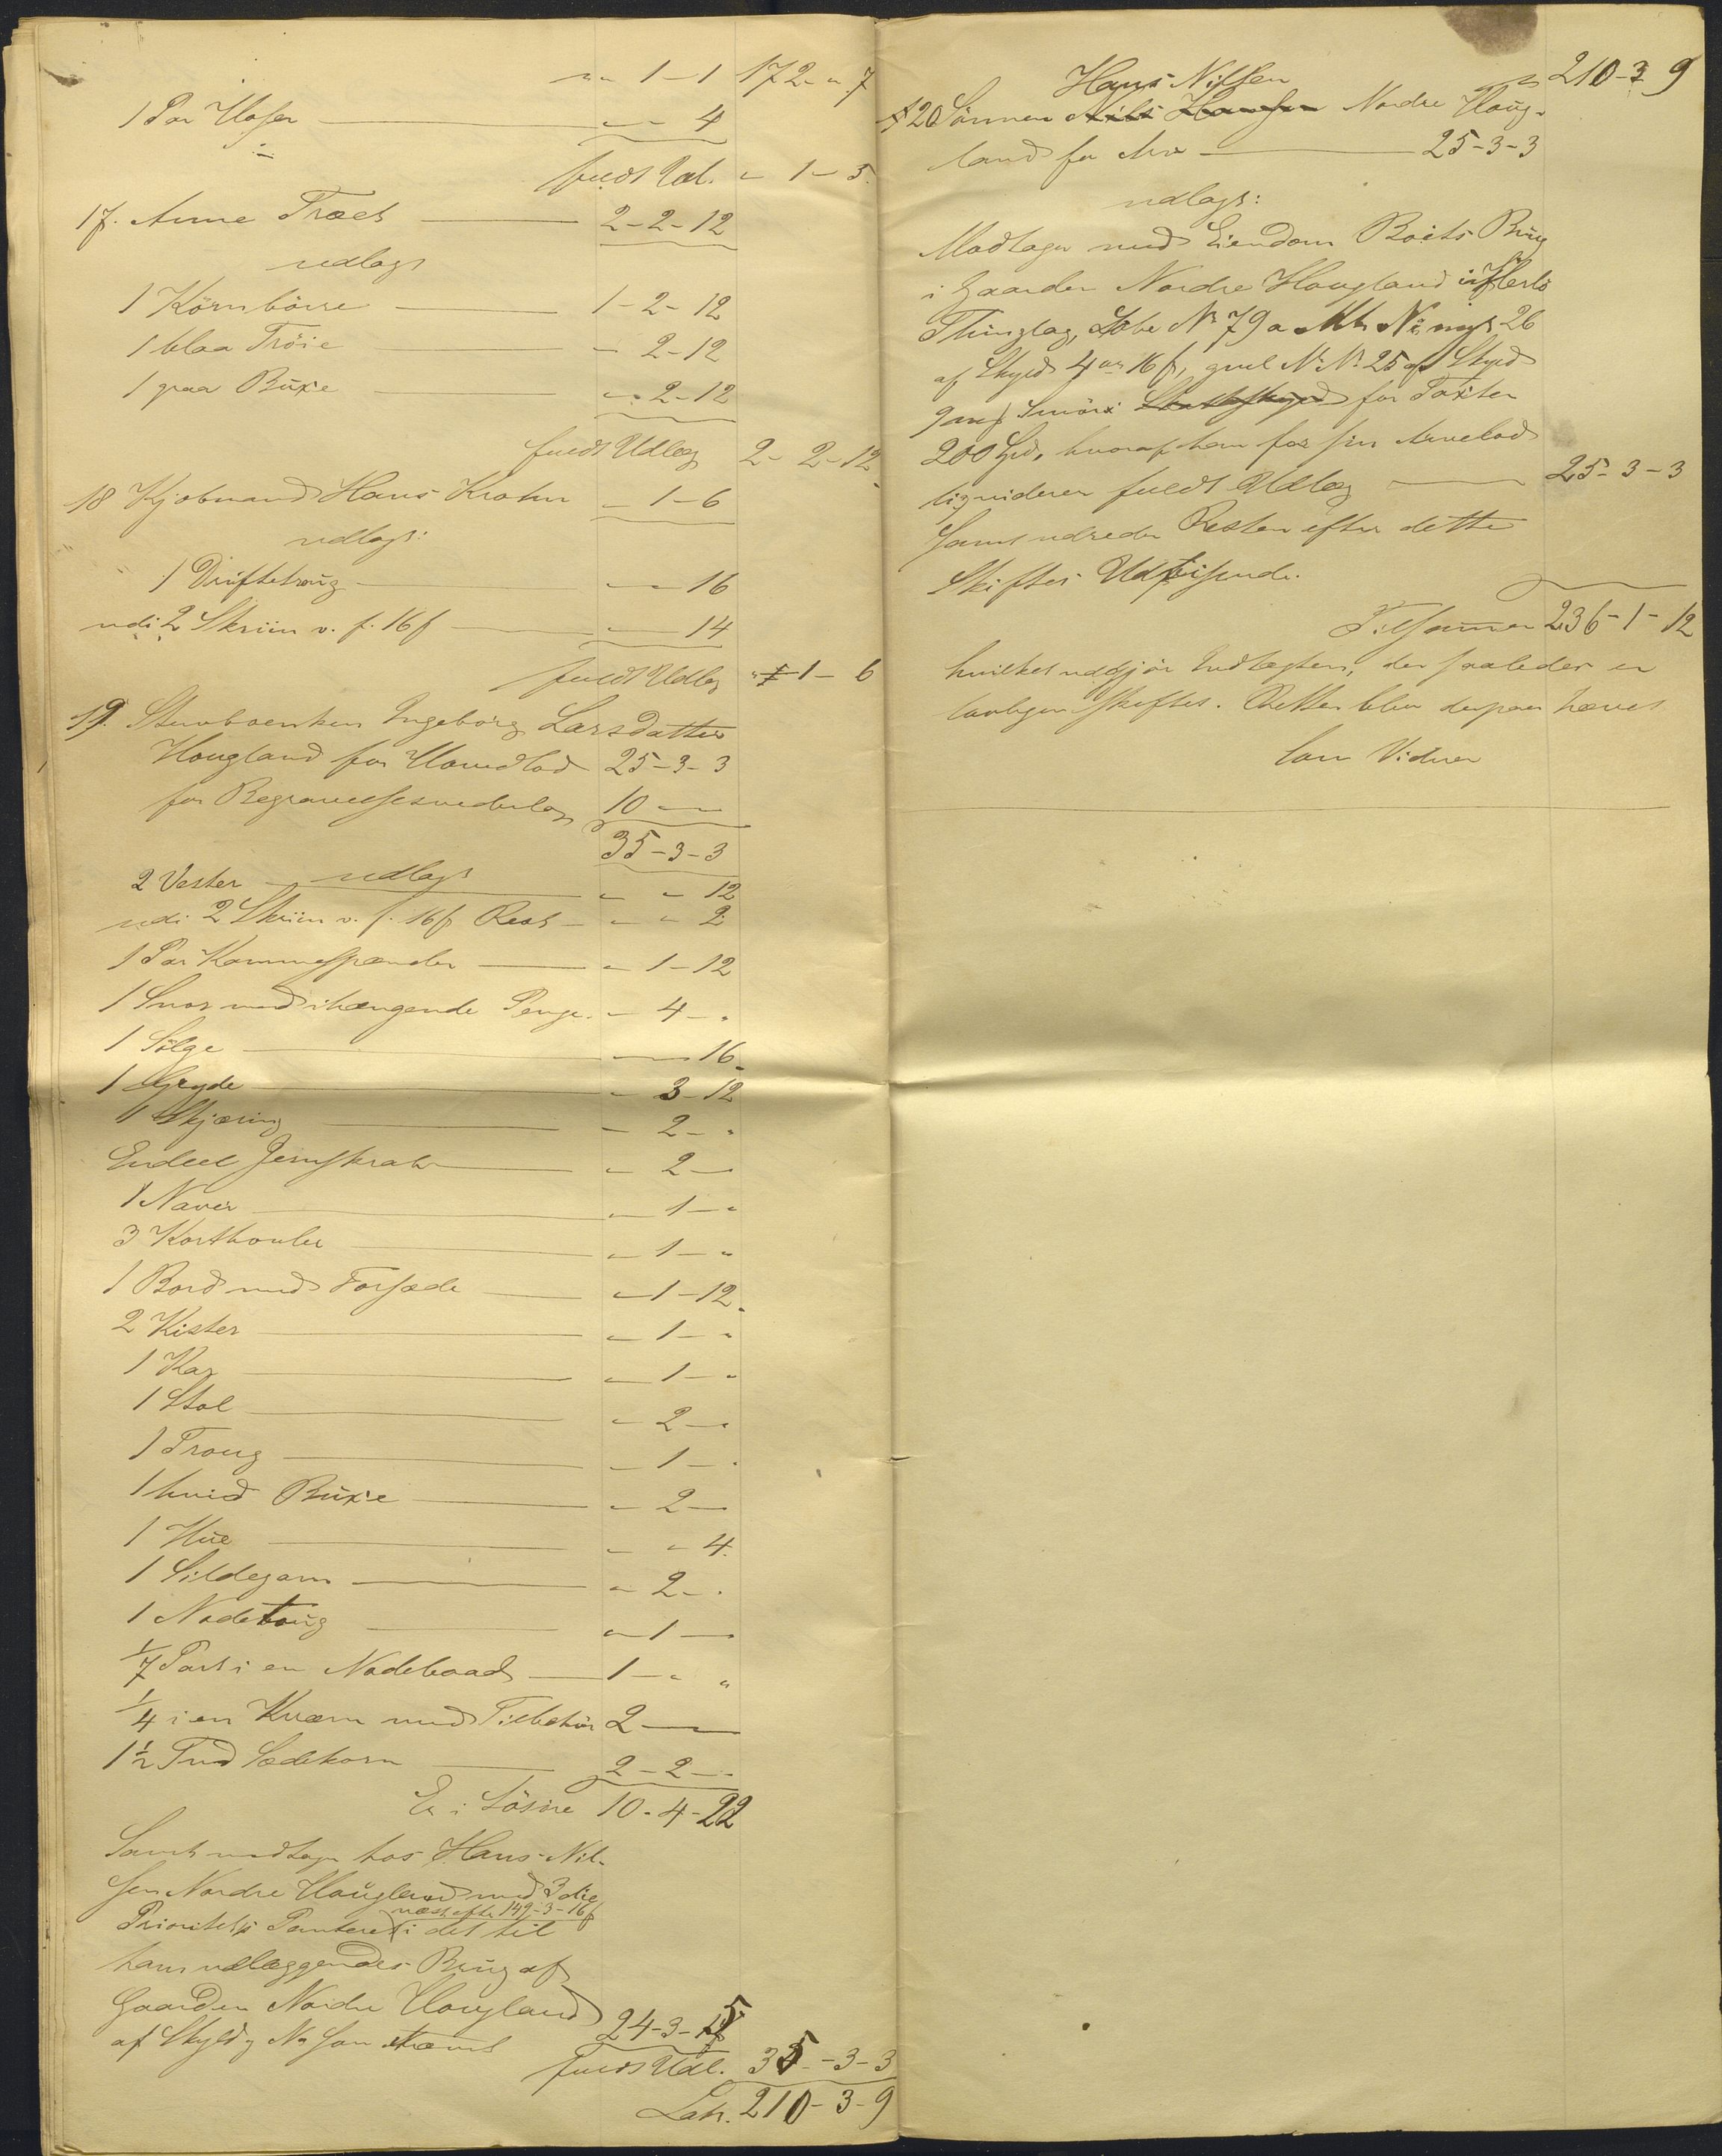 " - 1 - 1 172 - " - 7
1 Par Hoser " - " - 4
fuldt Udl. " - 1 - 5.
17. Anne Træet 2 - 2 - 12
udlagt
1 Körnbörre 1 - 2 - 12
1 blaa Tröie " - 2 - 12
1 graa Buxe " - 2 - 12
fuldt Udlæg 2 - 2 - 12
18 Kjøbmand Hans Krohn " - 1 - 6
udlagt:
1 Driftetroug " - " - 16
udi 2 Skriin v. f. 16 f " - " - 14
fuldt Udlæg " - 1 - 6
19. Stervboenken Ingeborg Larsdatter
Hougland for Hovedlod 25 - 3 - 3
for Begravelsesvederlag 10 - " - "
35 - 3 - 3
udlagt
2 Vester " - " - 12
udi 2 Skriin v. f. 16 f Rest " - " - 2
1 Par Kommespænder " - 1 - 12
1 Snor med ihængende Penge " - 4 - "
1 Sölge " - " - 16
1 Gryde " - 3 - 12
1 Skjæring " - 2 - "
Endeel Jernskrab " - 2 - "
1 Naver " - 1 - "
3 Korthouler " - 1 - "
1 Bord med Forsæde " - 1 - 12
2 Kister " - 1 - "
1 Kar " - 1 - "
1 Stol " - 2 - "
1 Troug " - 1 - "
1 hvid Buxe " - 2 - "
1 Hue " - " - 4
1 Sildegarn " - 2 - "
1 Nodetoug " - 1 - "
1/7 Part i en Nodebaad 1 - " - "
1/4 i en Kværn med Tilbehör 2 - " - "
1 1/2 Tnd Sædekorn 2 - 2 - "
Er i Lösøre 10 - 4 - 22
Samt modtager hos Hans Nil-
sen Nordre Hougland med 3die
næst efter 149 - 3 - 16 f
Prioritets Panteret i det til
ham udlæggendes Brug af
Gaarden Nordre Hougland
af Skyld og No som nævnt 24 - 3 - 5
fuldt Udl. 35 - 3 - 3
Lat. 210 - 3 - 9
Hans Nilsen 210 - 3 - 9
20 Sönnen Nils Hansen Nordre Houg-
land for Arv 25 - 3 - 3
udlagt:
Modtager med Eiendom Boets Brug
i Gaarden Nordre Hougland i Herlö
Thinglag, Löbe No 79 a Mt. No nyt 26
af Skyld 4 ort 16 f, gml M. No 25 af Skyld
Smör for Taxten
200 Spd, hvoraf han for sin Arvelod
liqviderer fuldt Udlæg 25 - 3 - 3
Samt udreder Resten efter dette
Skiftes Udvisende.
Tilsammen 236 - 1 - 12
hvilket udgjör Indtægten, der saaledes er
lovligen skiftet. Retten blev derpaa hævet
Som Vidner